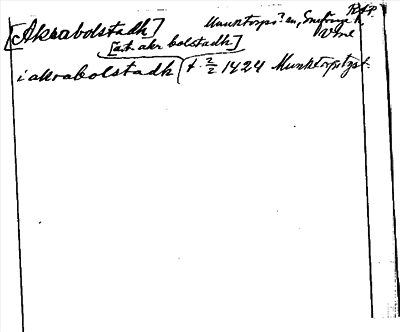 RAP.
[Akrabolstadh] Munktorps sn, Snefringe h
Vsml
[ut. akr bolstadh]
i akrabolstadh ( + 2/2 1424 Munktorpstgs